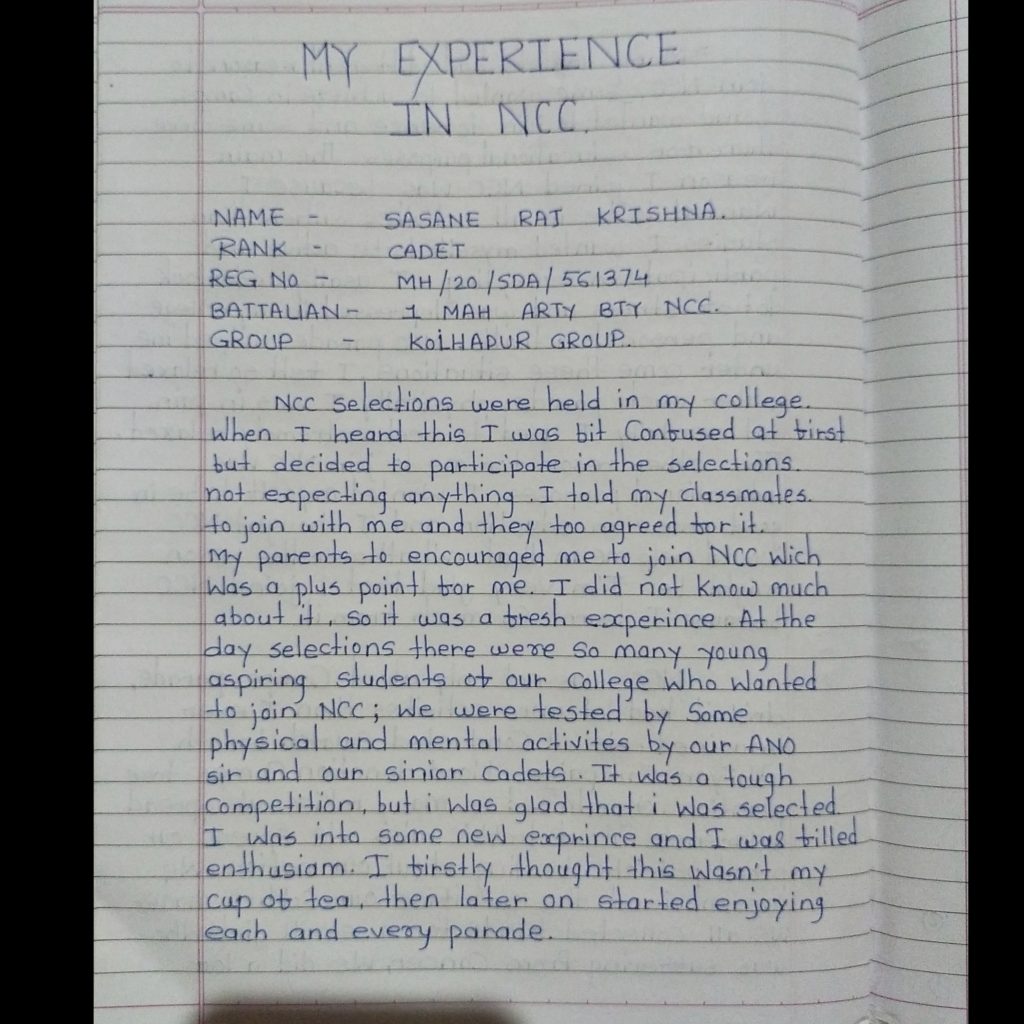 MY EXPERIENCE
IN NCC.
NAME - SASANE RAJ KRISHNA.
RANK - CADET
REG No - MH/20/SDA/561374
BATTALIAN - 1 MAH ARTY BTY NCC.
GROUP - KOLHAPUR GROUP.
NCC selections were held in my college.
When I heard this I was bit Confused at first
but decided to participate in the selections.
not expecting anything. I told my classmates.
to join with me and they too agreed for it.
My parents to encouraged me to join NCC Wich
Was a plus point for me. I did not know much
about it, so it was a fresh experince. At the
day selections there were so many young
aspiring students of our College Who Wanted
to join NCC; We were tested by Some
physical and mental activites by our ANO
sir and our sinior Cadets. It Was a tough
Competition, but i Was glad that i was selected
I was into some new exprince and I was filled
enthusiam. I firstly thought this Wasn't my
cup of tea, then later on started enjoying
each and every parade.